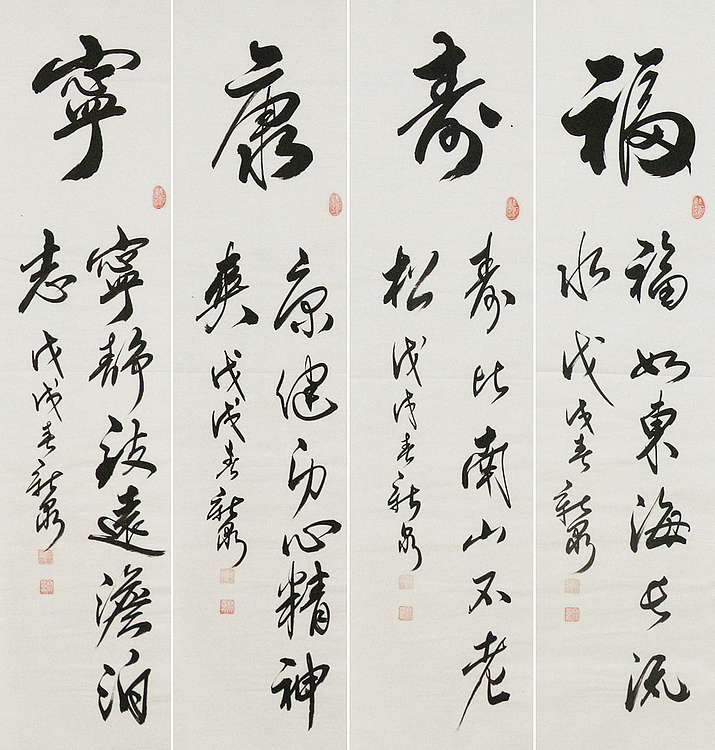 福
福如東海长流
水 戊戌春新泉
寿
寿比南山不老
松 戊戌春新泉
康
康健身心精神
爽 戊戌春新泉
寧
寧静致遠澹泊
志 戊戌春新泉